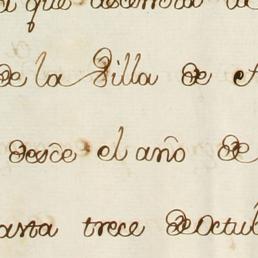 que ascendia la
de la Villa de
desde el año de
asta trece de Octu